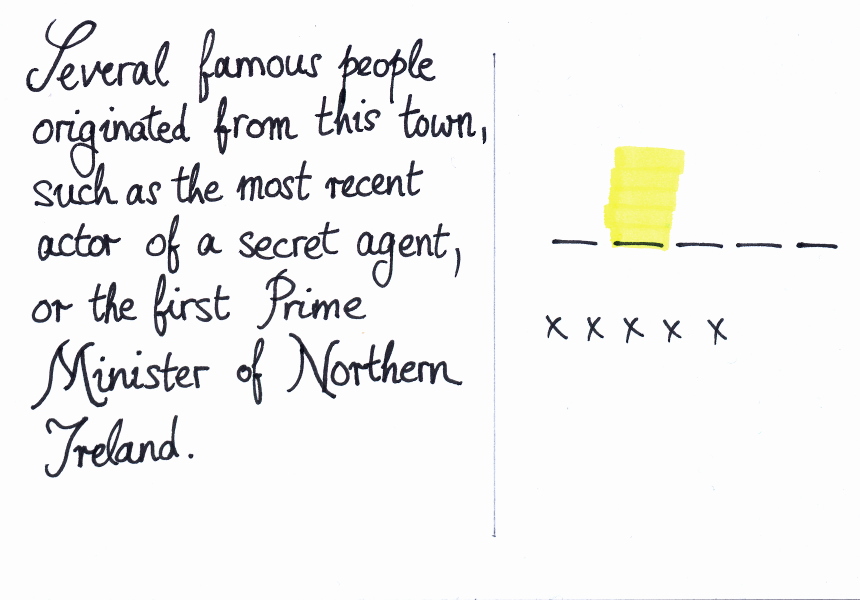 Several famous people
originated from this town,
such as the most recent
actor of a secret agent,
or the first Prime
Minister of Northern
Ireland.
_ _ _ _ _
x x x x x